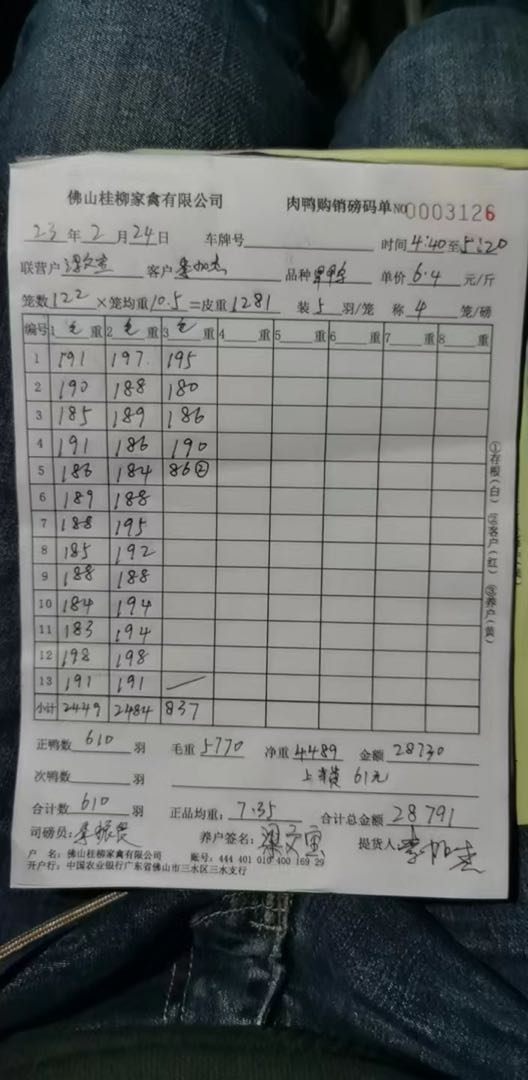 佛山桂柳家禽有限公司 肉鸭购销磅码单 NO 0003126
23年2月24日 车牌号 时间4:40至5:20
联营户 客户 品种 单价6.4元/斤
笼数122×笼均重10.5=皮重1281 装5羽/笼 称4笼/磅
编号 1毛重 2毛重 3毛重 4重 5重 6重 7重 8重
1 191 197 195
2 190 188 180
3 185 189 186
4 191 186 190
5 186 184 86②
6 189 188
7 188 195
8 185 192
9 188 188
10 184 194
11 183 194
12 198 198
13 191 191
小计 2449 2484 837
①存根(白) ②客户(红) ③养户(黄)
正鸭数610羽 毛重5770 净重4489 金额28730
次鸭数 羽 61元
合计数610羽 正品均重:7.35 合计总金额28791
司磅员: 养户签名: 提货人:
户 名:佛山桂柳家禽有限公司 账号:444 401 010 400 169 29
开户行:中国农业银行广东省佛山市三水区三水支行